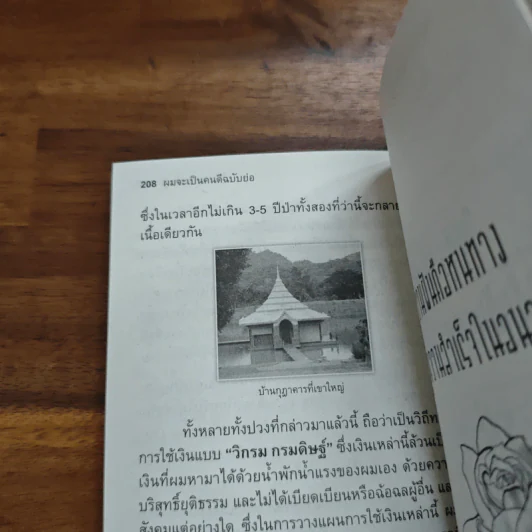 208 ผมจะเป็นคนดีฉบับย่อ
ซึ่งในเวลาอีกไม่เกิน 3-5 ปีป่าทั้งสองที่ว่านี้จะกลาย
เนื้อเดียวกัน
บ้านกุฎาคารที่เขาใหญ่
ทั้งหลายทั้งปวงที่กล่าวมาแล้วนี้ ถือว่าเป็นวิถีท
การใช้เงินแบบ “วิกรม กรมดิษฐ์” ซึ่งเงินเหล่านี้ล้วนเป็
เงินที่ผมหามาได้ด้วยน้ำพักน้ำแรงของผมเอง ด้วยควา
บริสุทธิ์ยุติธรรม และไม่ได้เบียดเบียนหรือฉ้อฉลผู้อื่น แล
สังคมแต่อย่างใด ซึ่งในการวางแผนการใช้เงินเหล่านี้ ผม